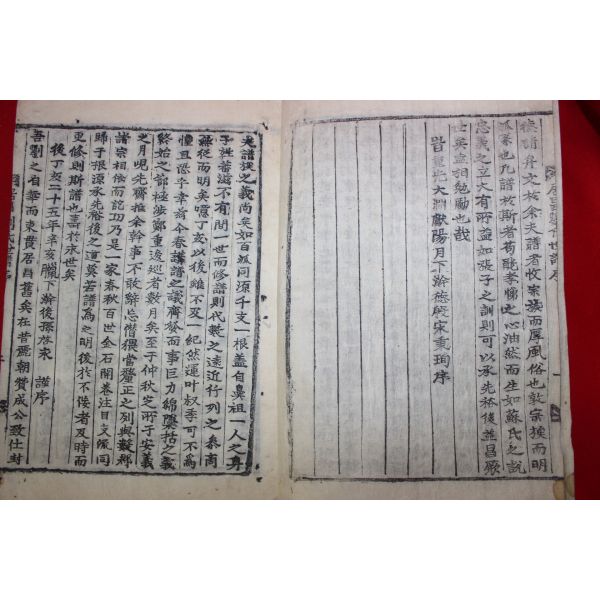 徵明身文於余夫譜者收宗族而厚風俗也敦宗族而明
派系也凡譜於斯者苟能孝悌之心油然而生如蘇氏之說
忠義之立大有所益如張子之訓則可以承先裕後益昌厥
世矣盍相勉勵也哉
重光大淵獻陽月下澣德殷宋秉珣序
夫譜族之義尚矣如百派同須千支一根盖自鼻祖一人之身
子姓蕃滋不有間一世而修譜則代數之遠近行列之叅商
無從而明矣噫丁亥以後雖不及一紀然運叶叔季可不爲
懼且恐乎幸甞今春講譜之議齊發而事巨力綿興抬之義
終始之節極涉鄭重逡巡者數月矣至于仲秋芝所于安義
之月峴先齋雖余幹事不敢辭忘僭猥當釐正之列與數郡
諸宗相依而訖功乃是一家春秋百世金石開卷注目支派同
歸于根源承先裕後之道莫若譜爲之明後於不侫者及時而
更修則斯譜也壽於永世矣
後丁亥二十五年辛亥臘下澣後孫在求 謹序
吾劉之自華而東貫居昌舊矣在昔麗朝贊成公致仕封